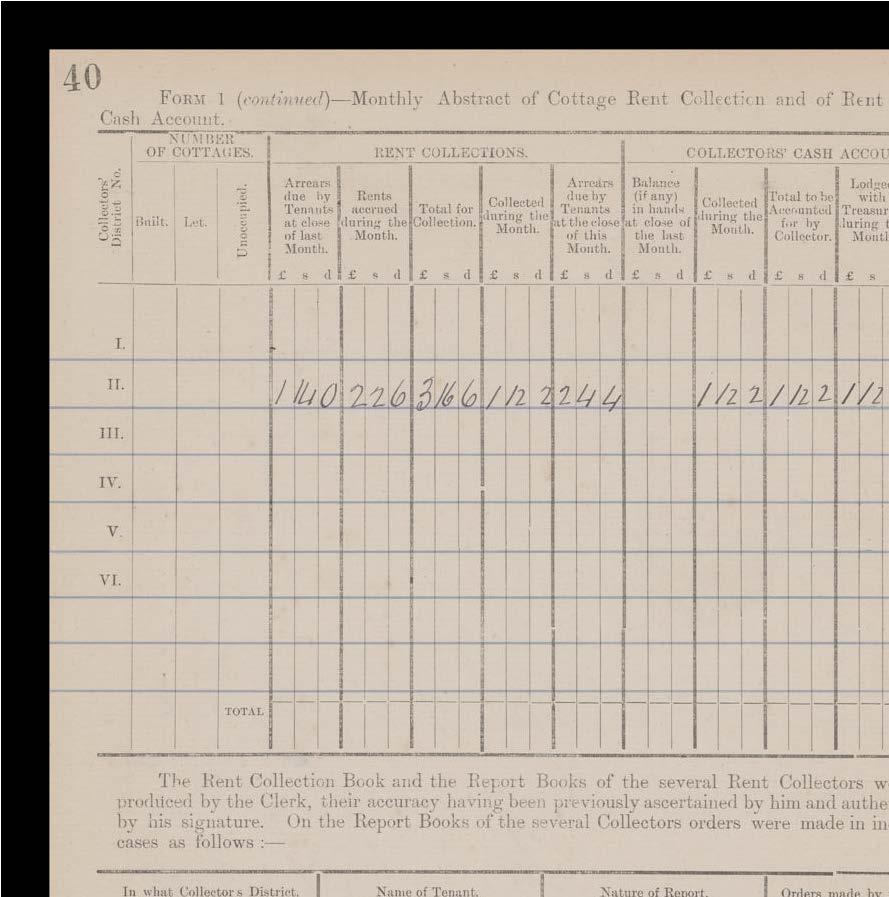 40
FORM 1 (continued)—Monthly Abstract of Cottage Rent Collection and of Rent
Cash Account.
Collectors' District No.
NUMBER
OF COTTAGES.
RENT COLLECTIONS.
COLLECTORS' CASH ACCOU
Built.
Let.
Unoccupied.
Arrears
due by
Tenants
at close
of last
Month.
Rents
accrued
during the
Month.
Total for
Collection.
Collected
during the
Month.
Arrears
due by
Tenants
at the close
of this
Month.
Balance
(if any)
in hands
at close of
the last
Month.
Collected
during the
Month.
Total to be
Accounted
for by
Collector.
Lodge
with
Treasur
during t
Month
£ s d £ s d £ s d £ s d £ s d £ s d £ s d £ s d £ s
I.
II. 1 14 0 2 2 6 3 16 6 1 12 2 2 4 4 1 12 2 1 12 2 1 12
III.
IV.
V.
VI.
TOTAL
The Rent Collection Book and the Report Books of the several Rent Collectors w
produced by the Clerk, their accuracy having been previously ascertained by him and authe
by his signature. On the Report Books of the several Collectors orders were made in in
cases as follows :—
In what Collectors District. Name of Tenant. Nature of Report. Orders made by